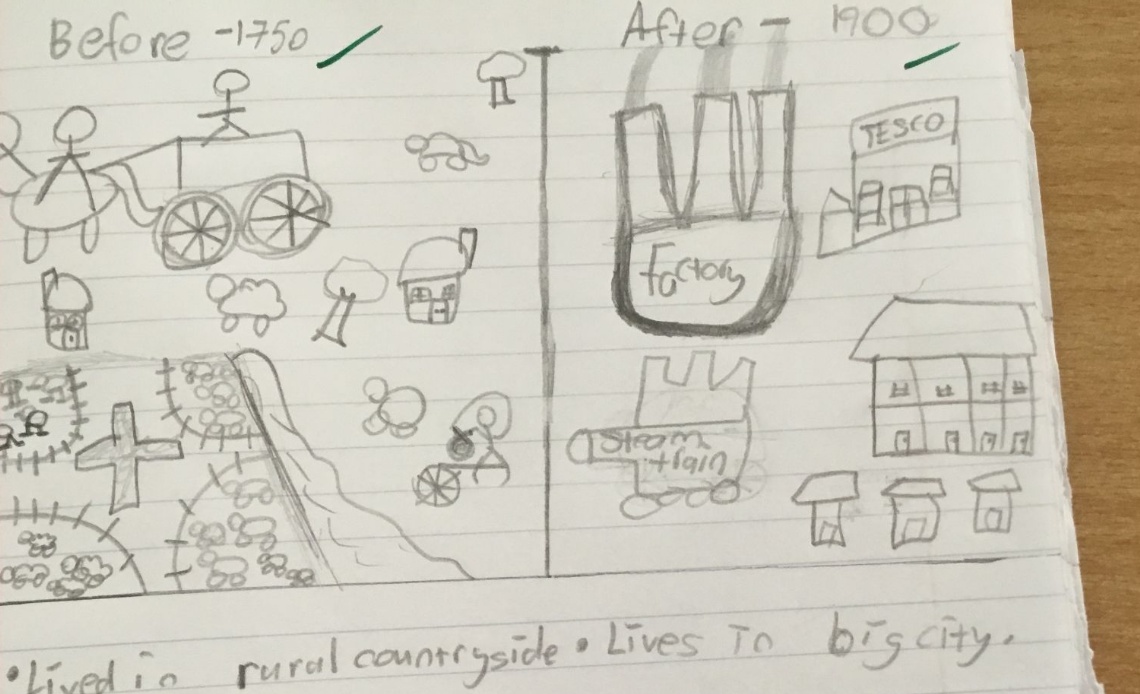 Before -1750
After - 1900
TESCO
factory
Steam
train
• Lived in rural countryside • Lives in big city.